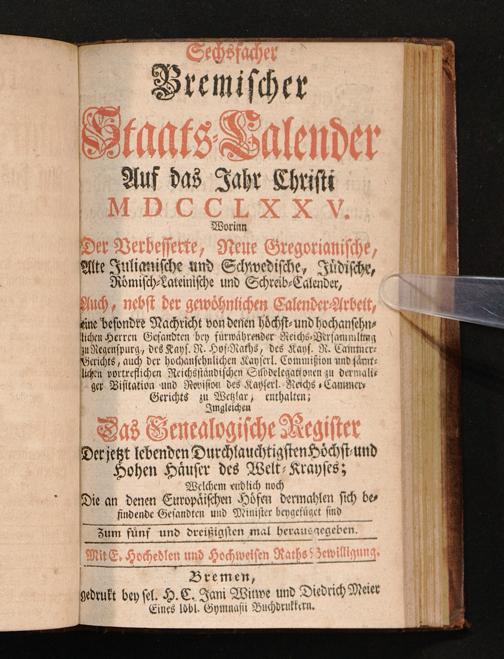 Sechsfacher
Bremischer
Staats-Calender
Auf das Jahr Christi
MDCCLXXV.
Worinn
Der Verbesserte, Neue Gregorianische,
Alte Julianische und Schwedische, Jüdische,
Römisch-Lateinische und Schreib-Calender,
Auch, nebst der gewöhnlichen Calender-Arbeit,
eine besondre Nachricht von denen höchst- und hochansehn-
lichen Herren Gesandten bey fürwährender Reichs-Versammlung
zu Regenspurg, des Kays. R. Hof-Raths, des Kays. R. Cammer-
Gerichts, auch der hochansehnlichen Kayserl. Commißion und sämt-
lichen vortreflichen Reichsständischen Subdelegationen zu dermali-
ger Visitation und Revision des Kayserl. Reichs-Cammer-
Gerichts zu Wetzlar, enthalten;
Imgleichen
Das Genealogische Register
Der jetzt lebenden Durchlauchtigsten Höchst- und
Hohen Häuser des Welt-Krayses;
Welchem endlich noch
Die an denen Europäischen Höfen dermahlen sich be-
findende Gesandten und Minister beygefüget sind
Zum fünf und dreißigsten mal herausgegeben.
Mit E. Hochedlen und Hochweisen Raths Bewilligung.
Bremen,
gedrukt bey sel. H. C. Jani Witwe und Diedrich Meier
Eines löbl. Gymnasii Buchdruckern.